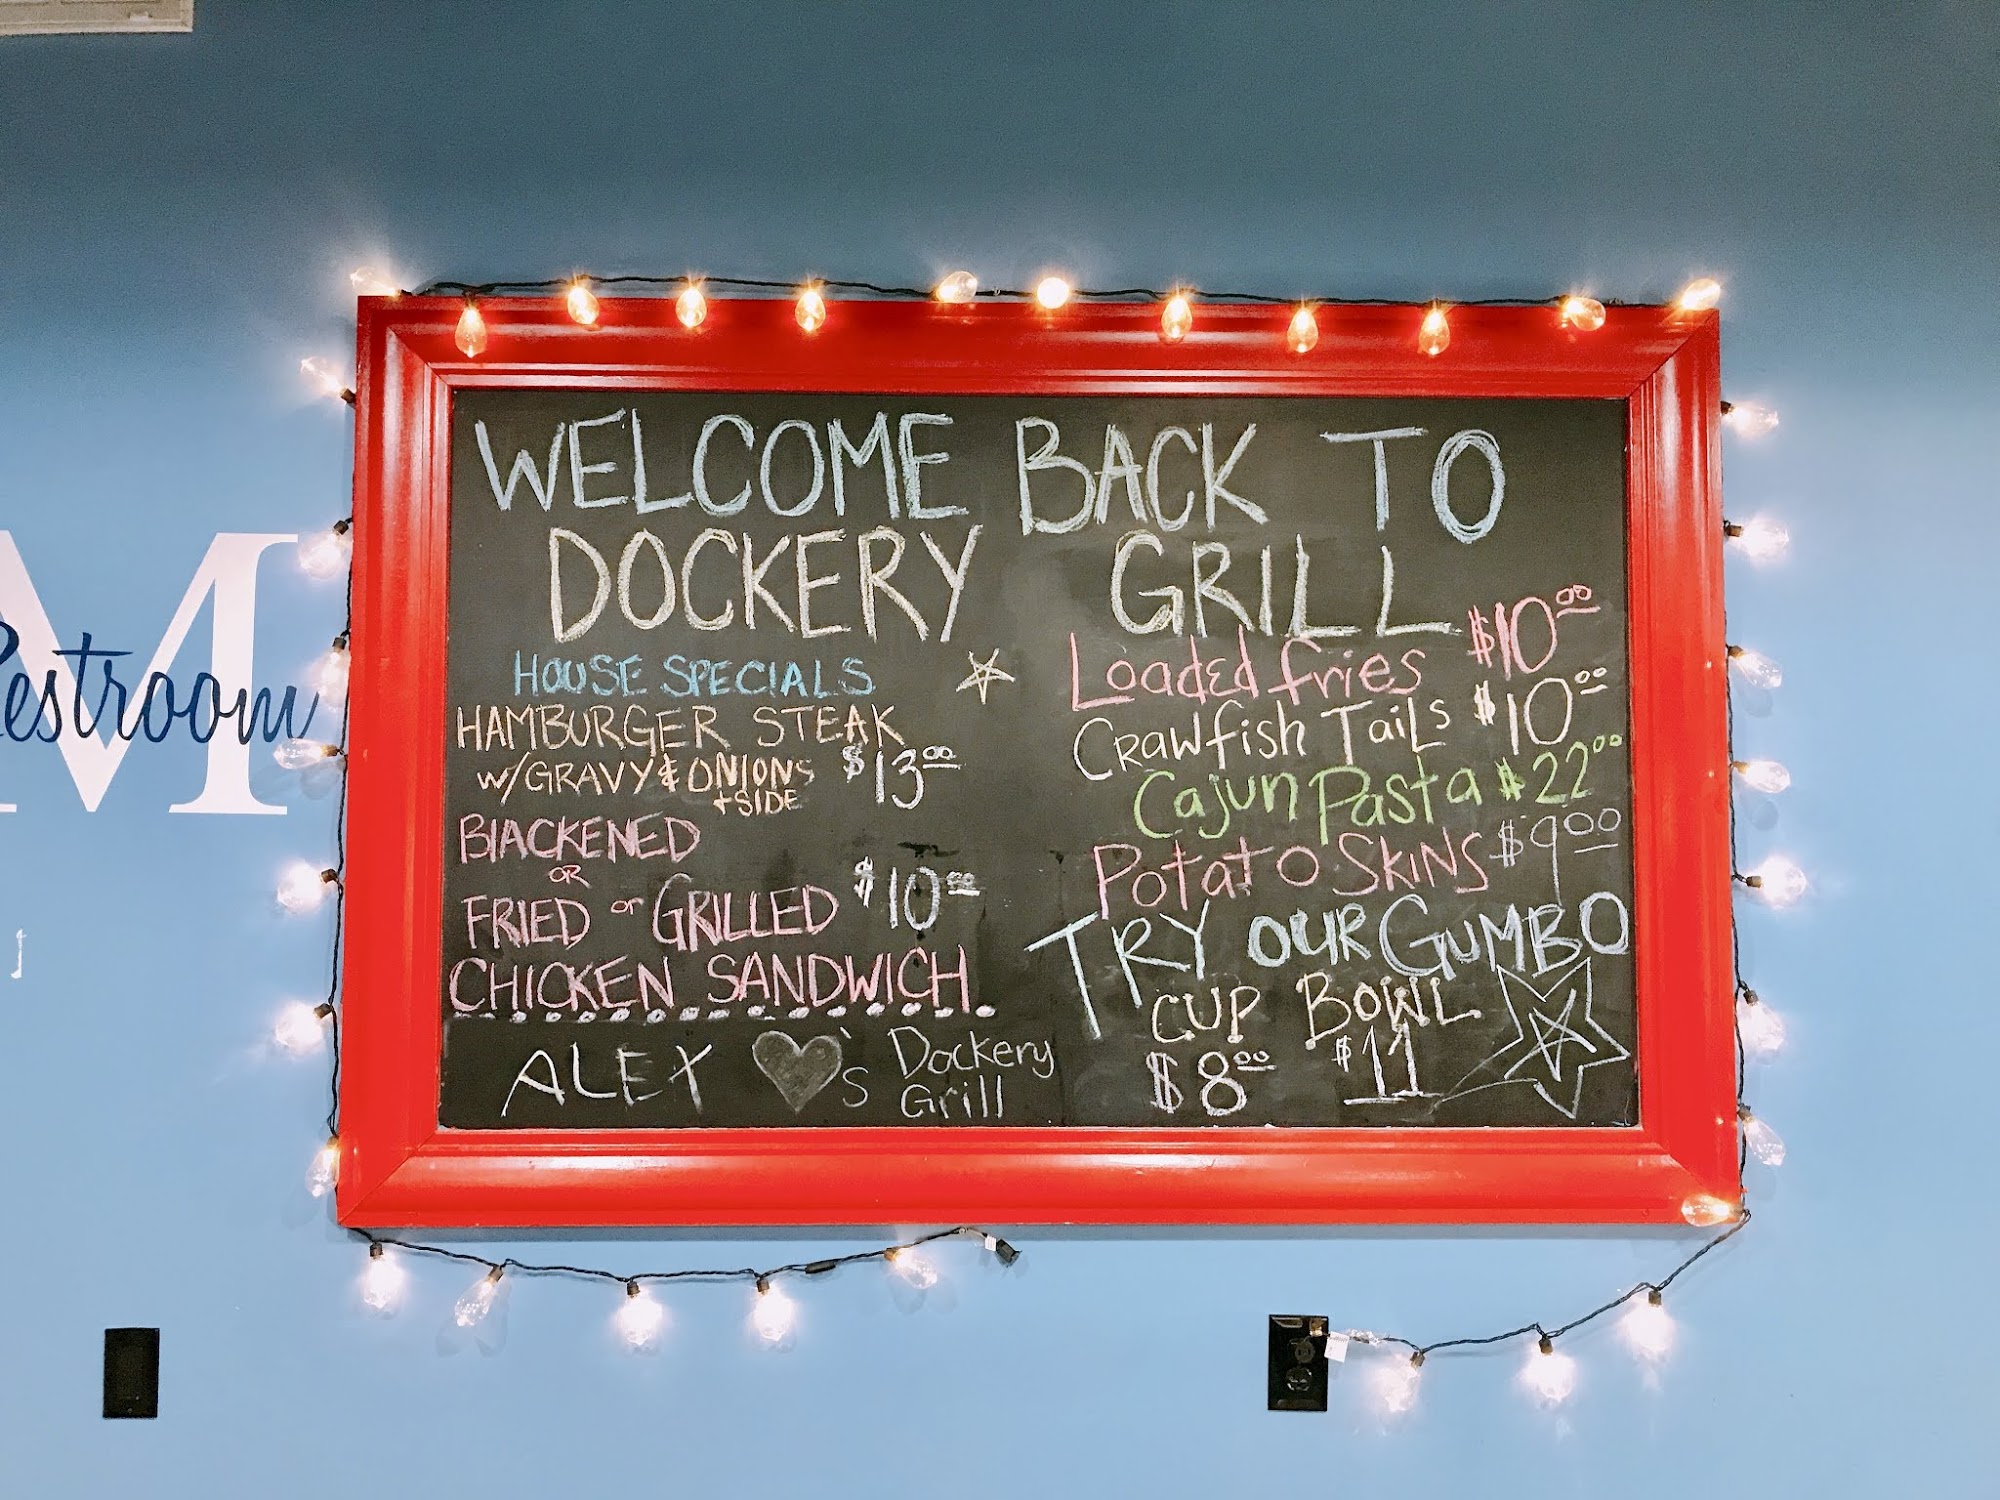 WELCOME BACK TO
DOCKERY GRILL
HOUSE SPECIALS
HAMBURGER STEAK
W/GRAVY & ONIONS $13.00
+SIDE
BlACKENED
OR
FRIED or GRILLED $10.00
CHICKEN SANDWICH
ALEX ♥'s Dockery
Grill
Loaded fries $10.00
Crawfish Tails $10.00
Cajun Pasta $22.00
Potato SKiNS $9.00
TRY OUR GUMBO
CUP BOWL
$8.00 $11
M
Restroom